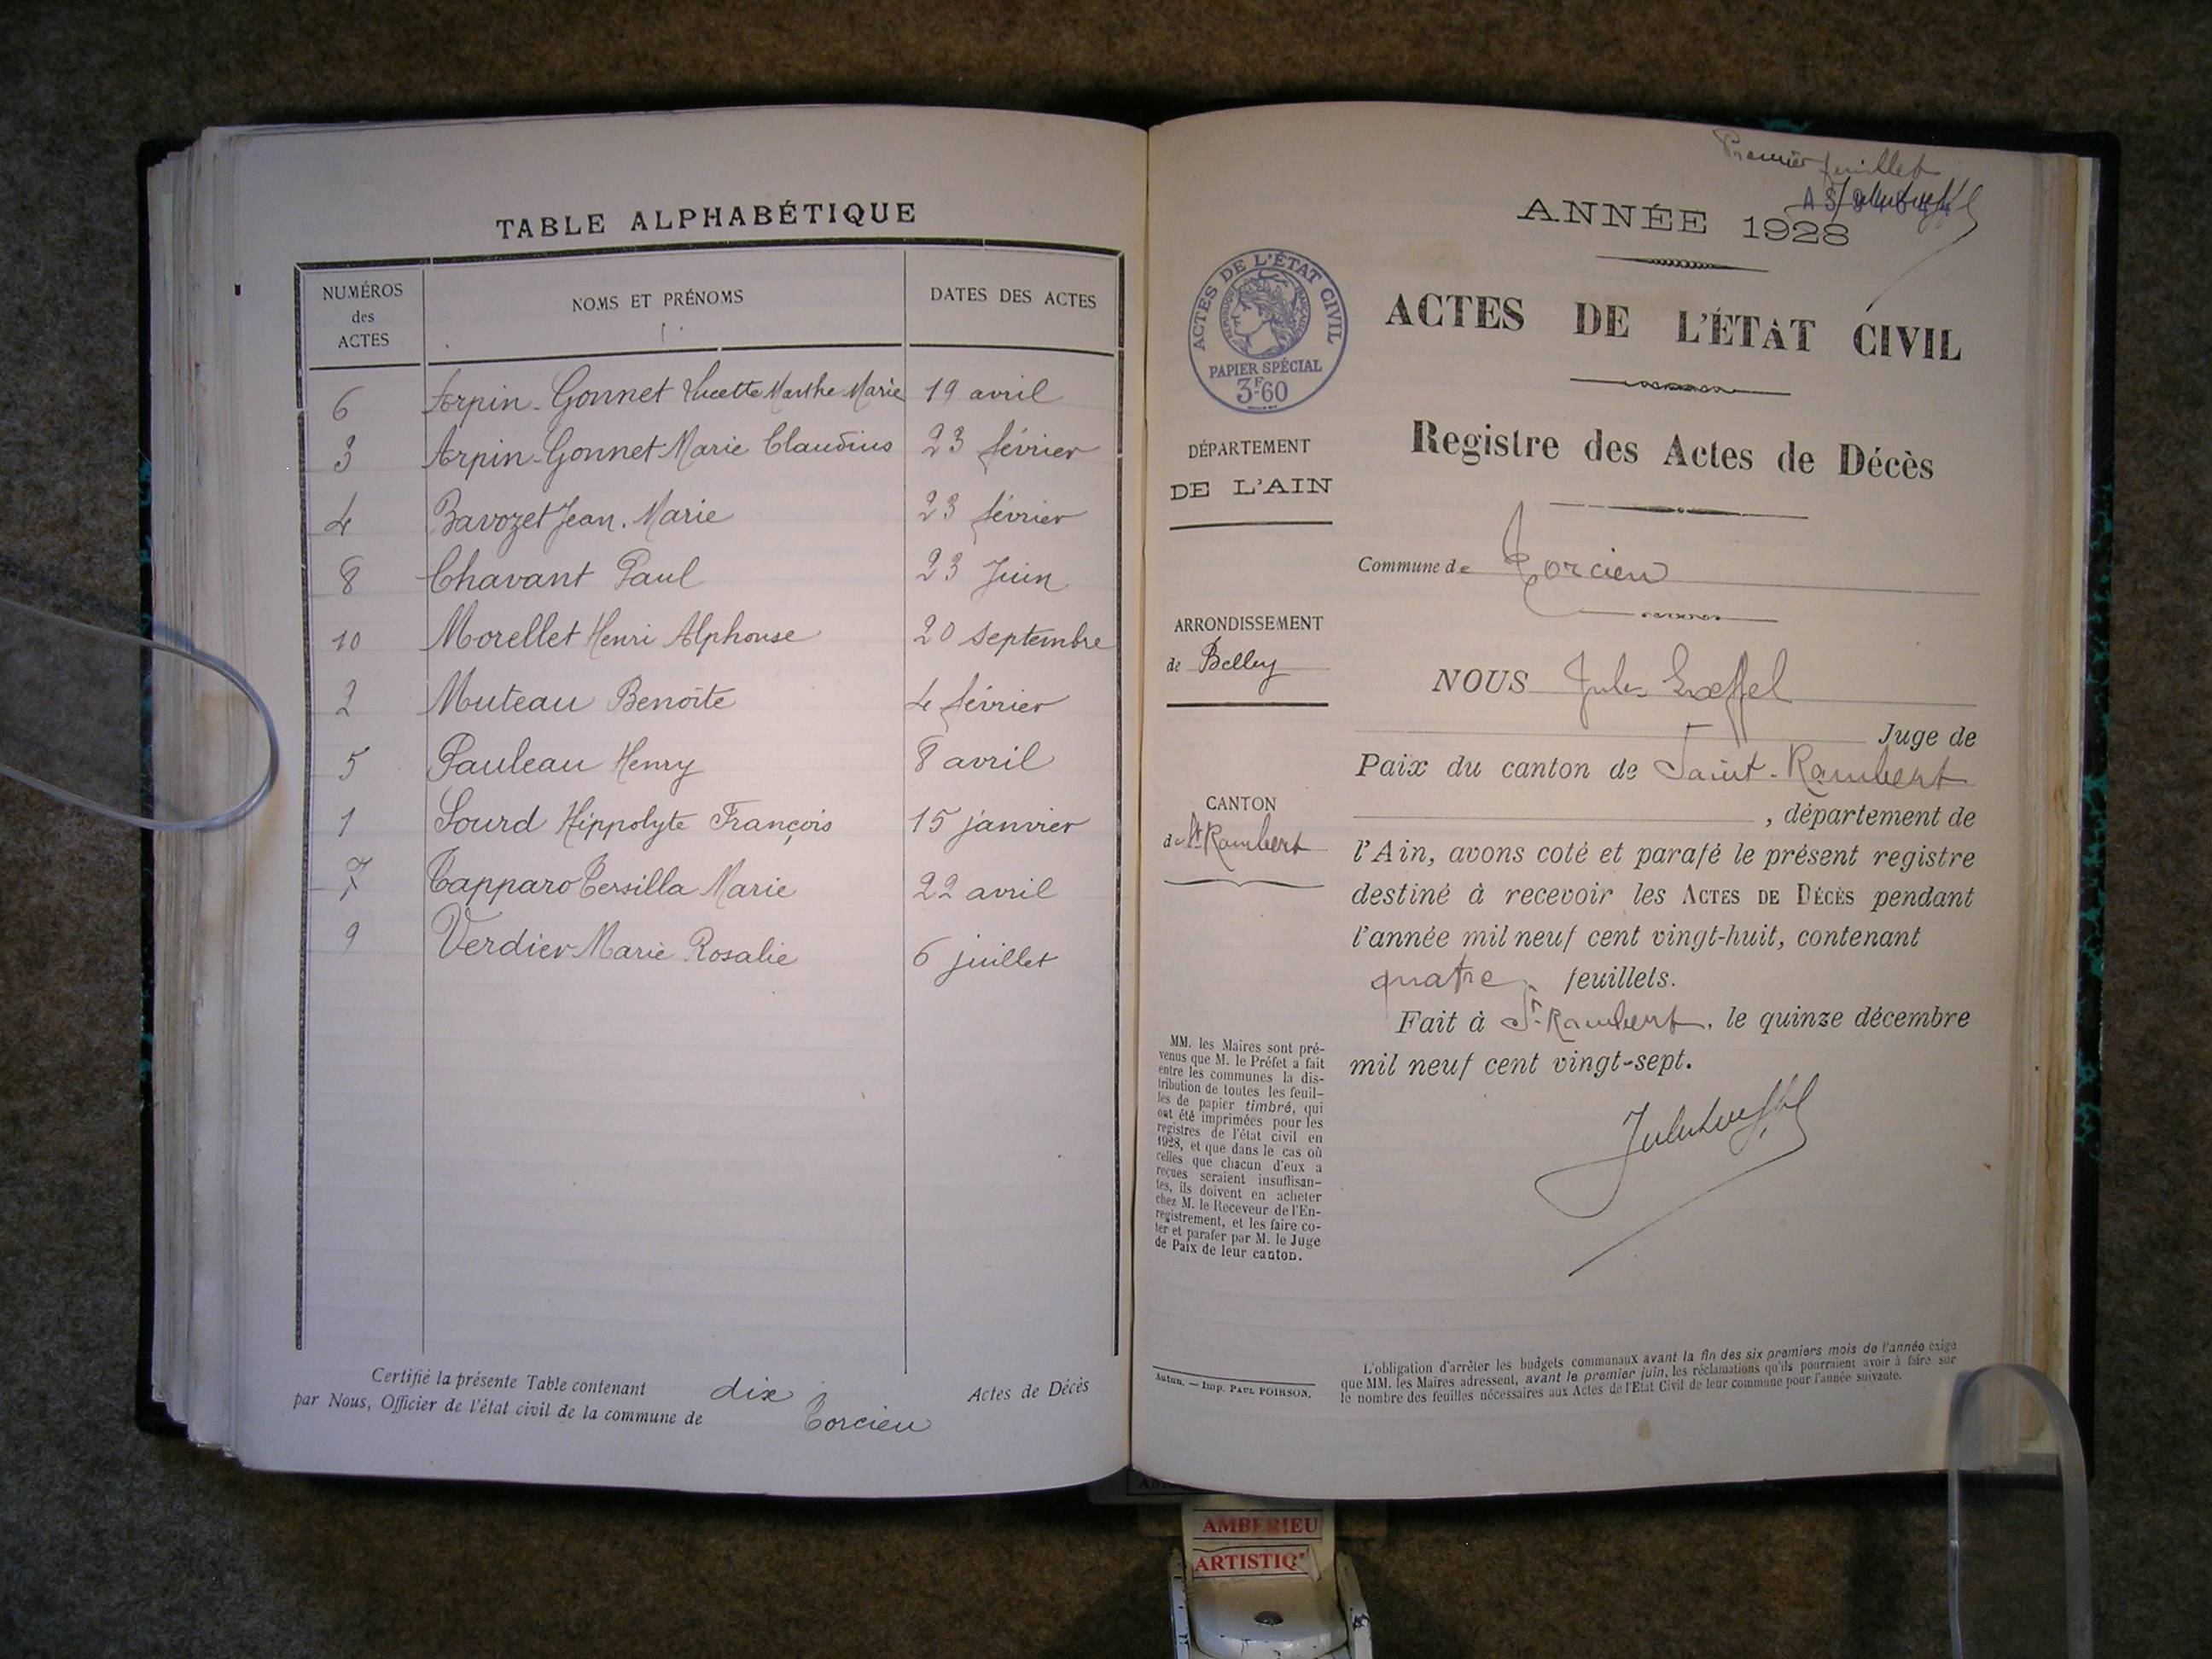 TABLE ALPHABÉTIQUE
NUMÉROS des ACTES NOMS ET PRÉNOMS DATES DES ACTES
6 Arpin-Gonnet Lucette Marthe Marie 19 avril
3 Arpin-Gonnet Marie Claudius 23 février
4 Bavozet Jean-Marie 23 février
8 Chavant Paul 23 Juin
10 Morellet Henri Alphonse 20 septembre
2 Muteau Benoite 4 février
5 Pauleau Henry 8 avril
1 Sourd Hippolyte François 15 janvier
7 Tapparo Tersilla Marie 22 avril
9 Verdier Marie Rosalie 6 juillet
Certifié la présente Table contenant dix Actes de Décès
par Nous, Officier de l'état civil de la commune de Torcieu
Premier feuillet
ANNÉE 1928
ACTES DE L'ÉTAT CIVIL
PAPIER SPÉCIAL
3F60
ACTES DE L'ÉTAT CIVIL
Registre des Actes de Décès
DÉPARTEMENT
DE L'AIN
Commune de Torcieu
ARRONDISSEMENT
de Belley
NOUS Jules
Juge de
Paix du canton de Saint-Rambert
CANTON
de St Rambert
, département de
l'Ain, avons coté et parafé le présent registre
destiné à recevoir les ACTES DE DÉCÈS pendant
l'année mil neuf cent vingt-huit, contenant
quatre feuillets.
Fait à St-Rambert, le quinze décembre
mil neuf cent vingt-sept.
MM. les Maires sont pré-
venus que M. le Préfet a fait
entre les communes la dis-
tribution de toutes les feuil-
les de papier timbré, qui
ont été imprimées pour les
registres de l'état civil en
1928, et que dans le cas où
celles que chacun d'eux a
reçues seraient insuffisan-
tes, ils doivent en acheter
chez M. le Receveur de l'En-
registrement, et les faire co-
ter et parafer par M. le Juge
de Paix de leur canton.
Autun. — Imp. PAUL POIRSON.
L'obligation d'arrêter les budgets communaux avant la fin des six premiers mois de l'année exige
que MM. les Maires adressent, avant le premier juin, les réclamations qu'ils pourraient avoir à faire sur
le nombre des feuilles nécessaires aux Actes de l'Etat Civil de leur commune pour l'année suivante.
AMBERIEU
ARTISTIQ